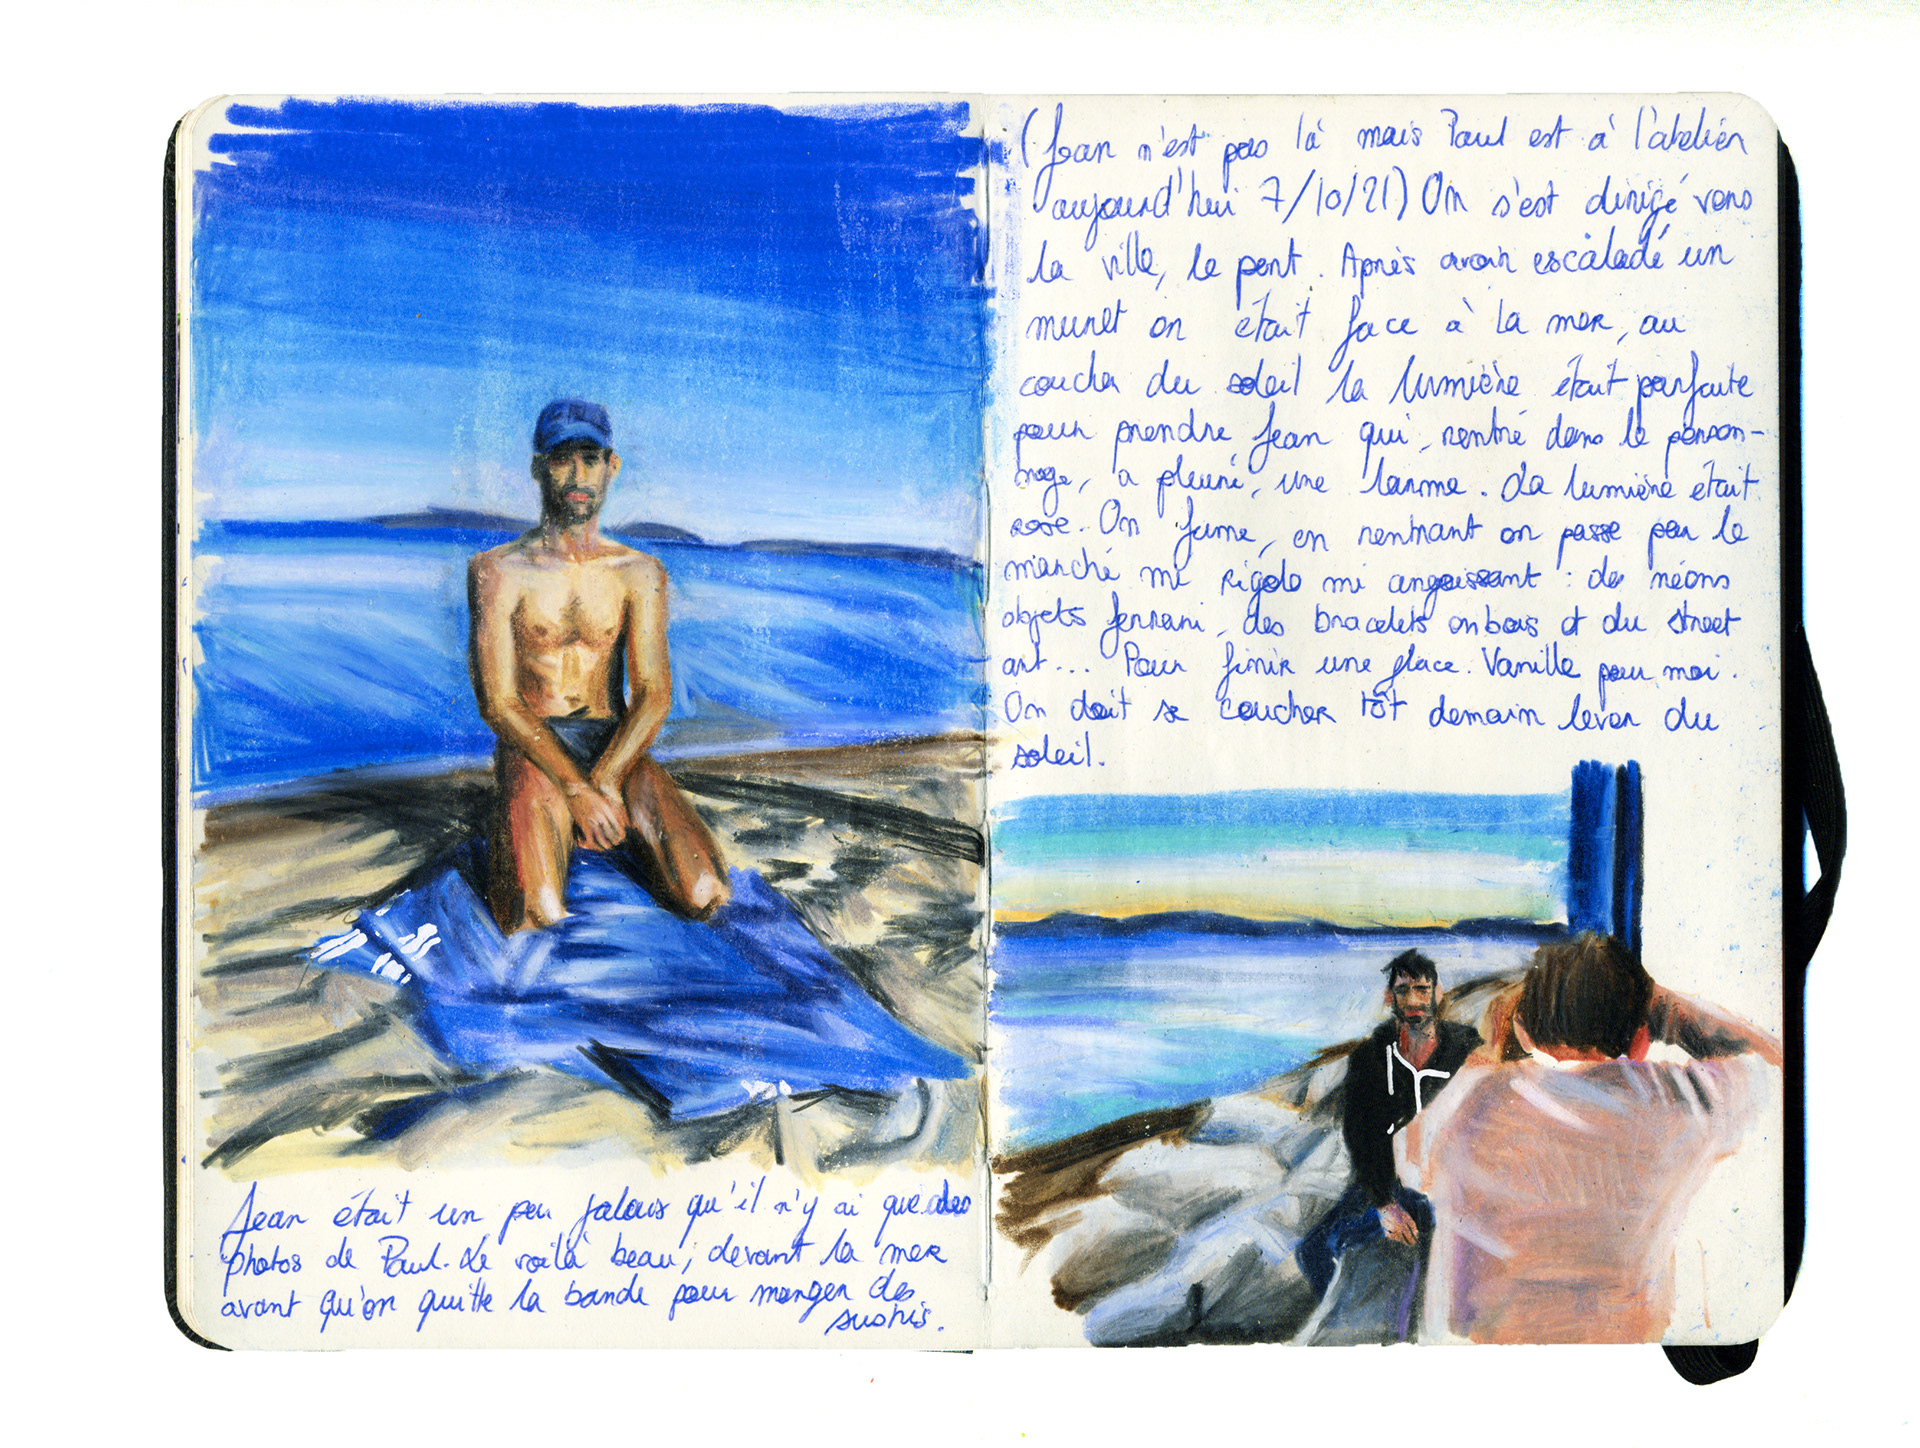 Jean était un peu jaloux qu'il n'y ai que des
photos de Paul. Le voilà beau, devant la mer
avant qu'on quitte la bande pour manger des
sushis.
(Jean n'est pas là mais Paul est à l'atelier
aujourd'hui 7/10/21) On s'est dirigé vers
la ville, le pont. Après avoir escaladé un
muret on était face à la mer, au
coucher du soleil la lumière était parfaite
pour prendre Jean qui, rentré dans le person-
nage, a pleuré, une larme. La lumière était
rose. On fume, en rentrant on passe par le
marché mi rigolo mi angoissant : des néons
objets ferrari, des bracelets en bois et du street
art... Pour finir une glace. Vanille pour moi.
On doit se coucher tôt demain lever du
soleil.